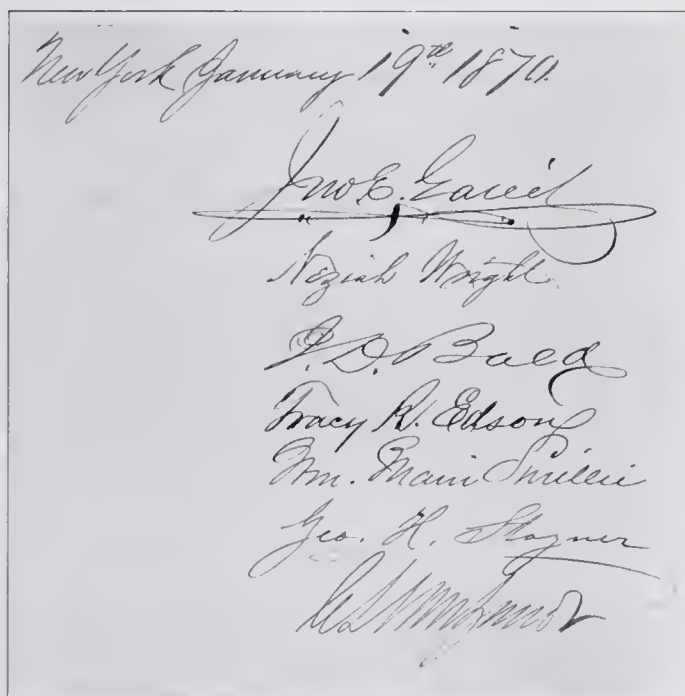 New York January 19th 1870.
Jno E. Gavit
Neziah Wright
J. D. Bald
Tracy R. Edson
Wm. Main Smillie
Geo. H. Stayner